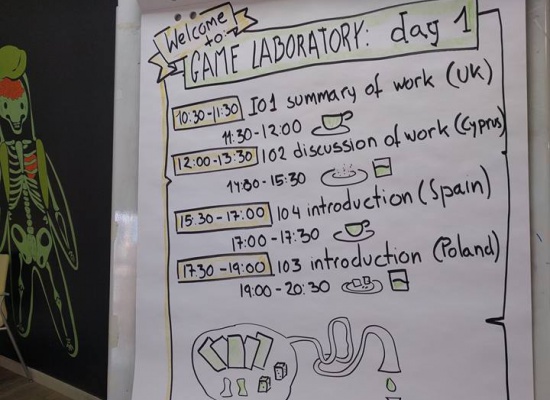 Welcome
to:
GAME LABORATORY: day 1
10:30-11:30 IO1 summary of work (UK)
11:30-12:00
12:00-13:30 IO2 discussion of work (Cyprus)
14:00-15:30
15:30-17:00 IO4 introduction (Spain)
17:00-17:30
17:30-19:00 IO3 introduction (Poland)
19:00-20:30